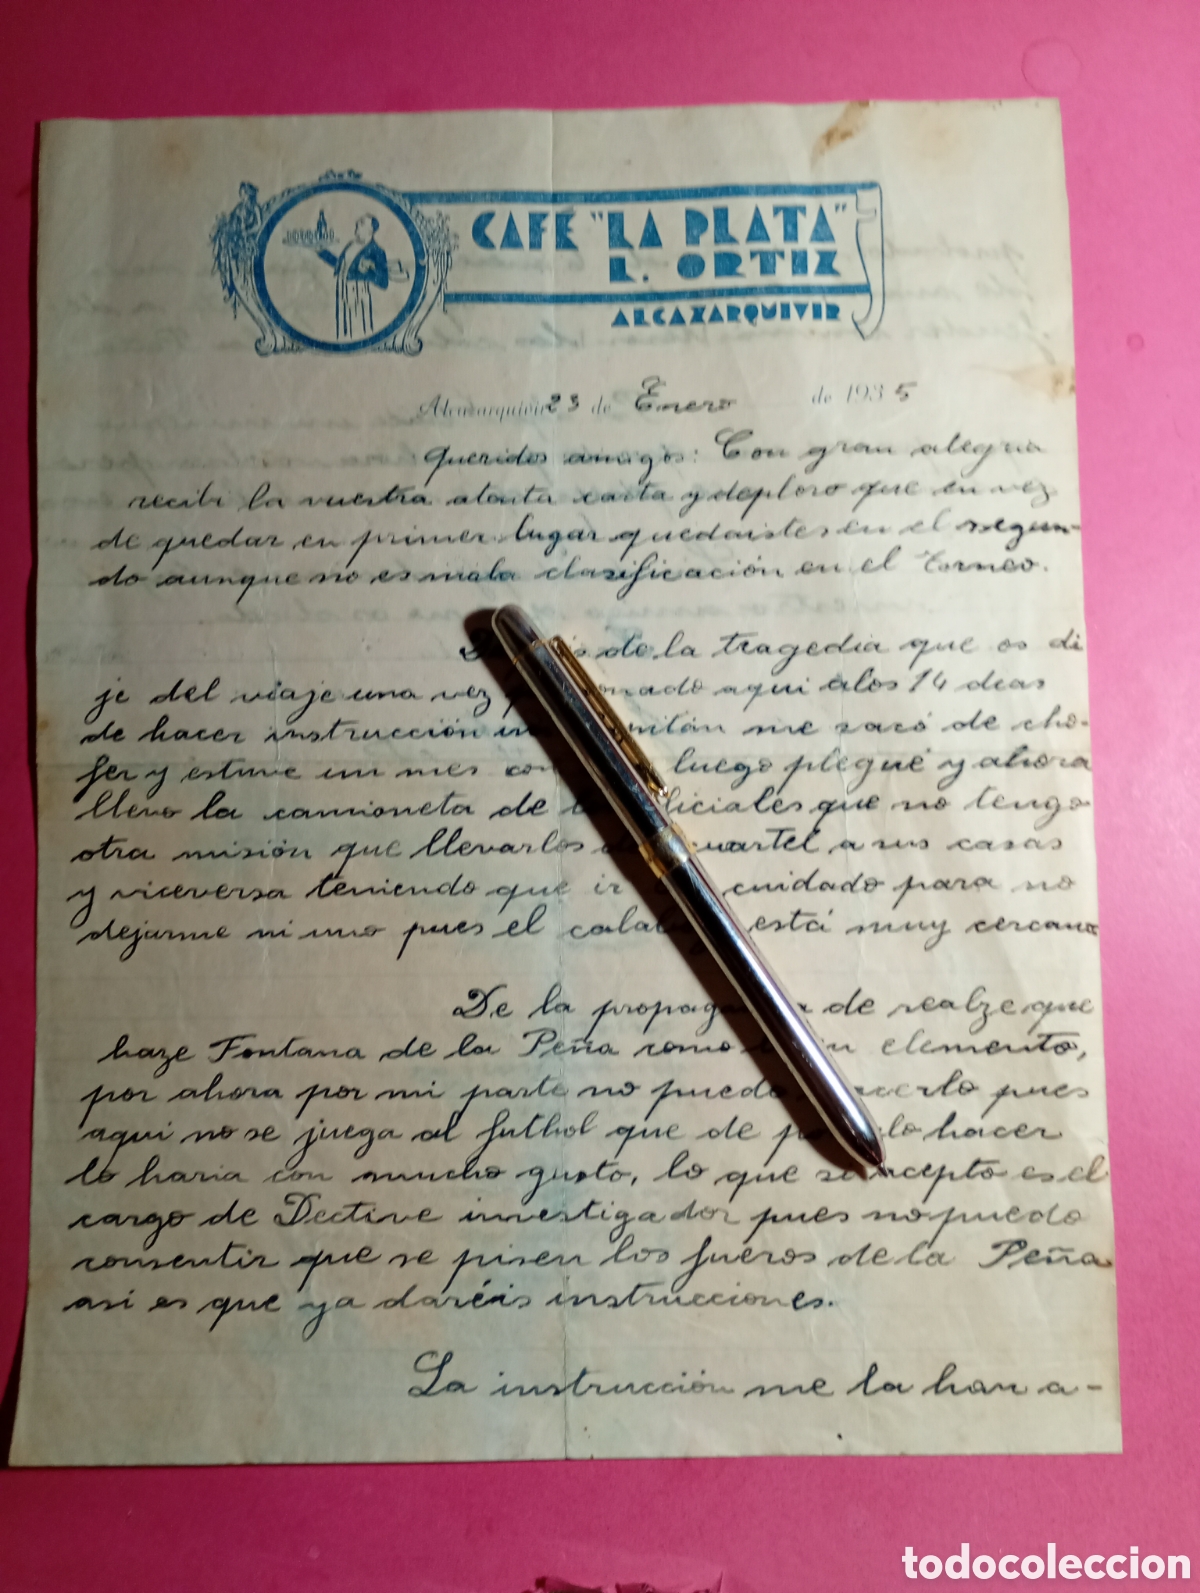 CAFÉ "LA PLATA"
L. ORTIZ
ALCAZARQUIVIR
Alcazarquivir 23 de Enero de 1935
Queridos amigos: Con gran alegria
recibi la vuestra atenta carta y deploro que en vez
de quedar en primer lugar quedaistes en el segun-
do aunque no es mala clasificación en el Torneo.
de la tragedia que os di
je del viaje una vez aqui alos 14 deas
de hacer instrucción me sacó de cho-
fer y estuve un mes luego plegué y ahora
llevo la camioneta de que no tengo
otra misión que llevarlos a sus casas
y viceversa teniendo que ir cuidado para no
dejarme ni uno pues el está muy cercano
De la de realze que
haze Fontana de la Peña como elemento,
por ahora por mi parte no puedo pues
aqui no se juega al futbol que de hacer
lo haria con mucho gusto, lo que si acepto es el
cargo de Dective investigador pues no puedo
consentir que se pisen los fueros de la Peña
asi es que ya daréis instrucciones.
La instrucción me la han a-
todocoleccion